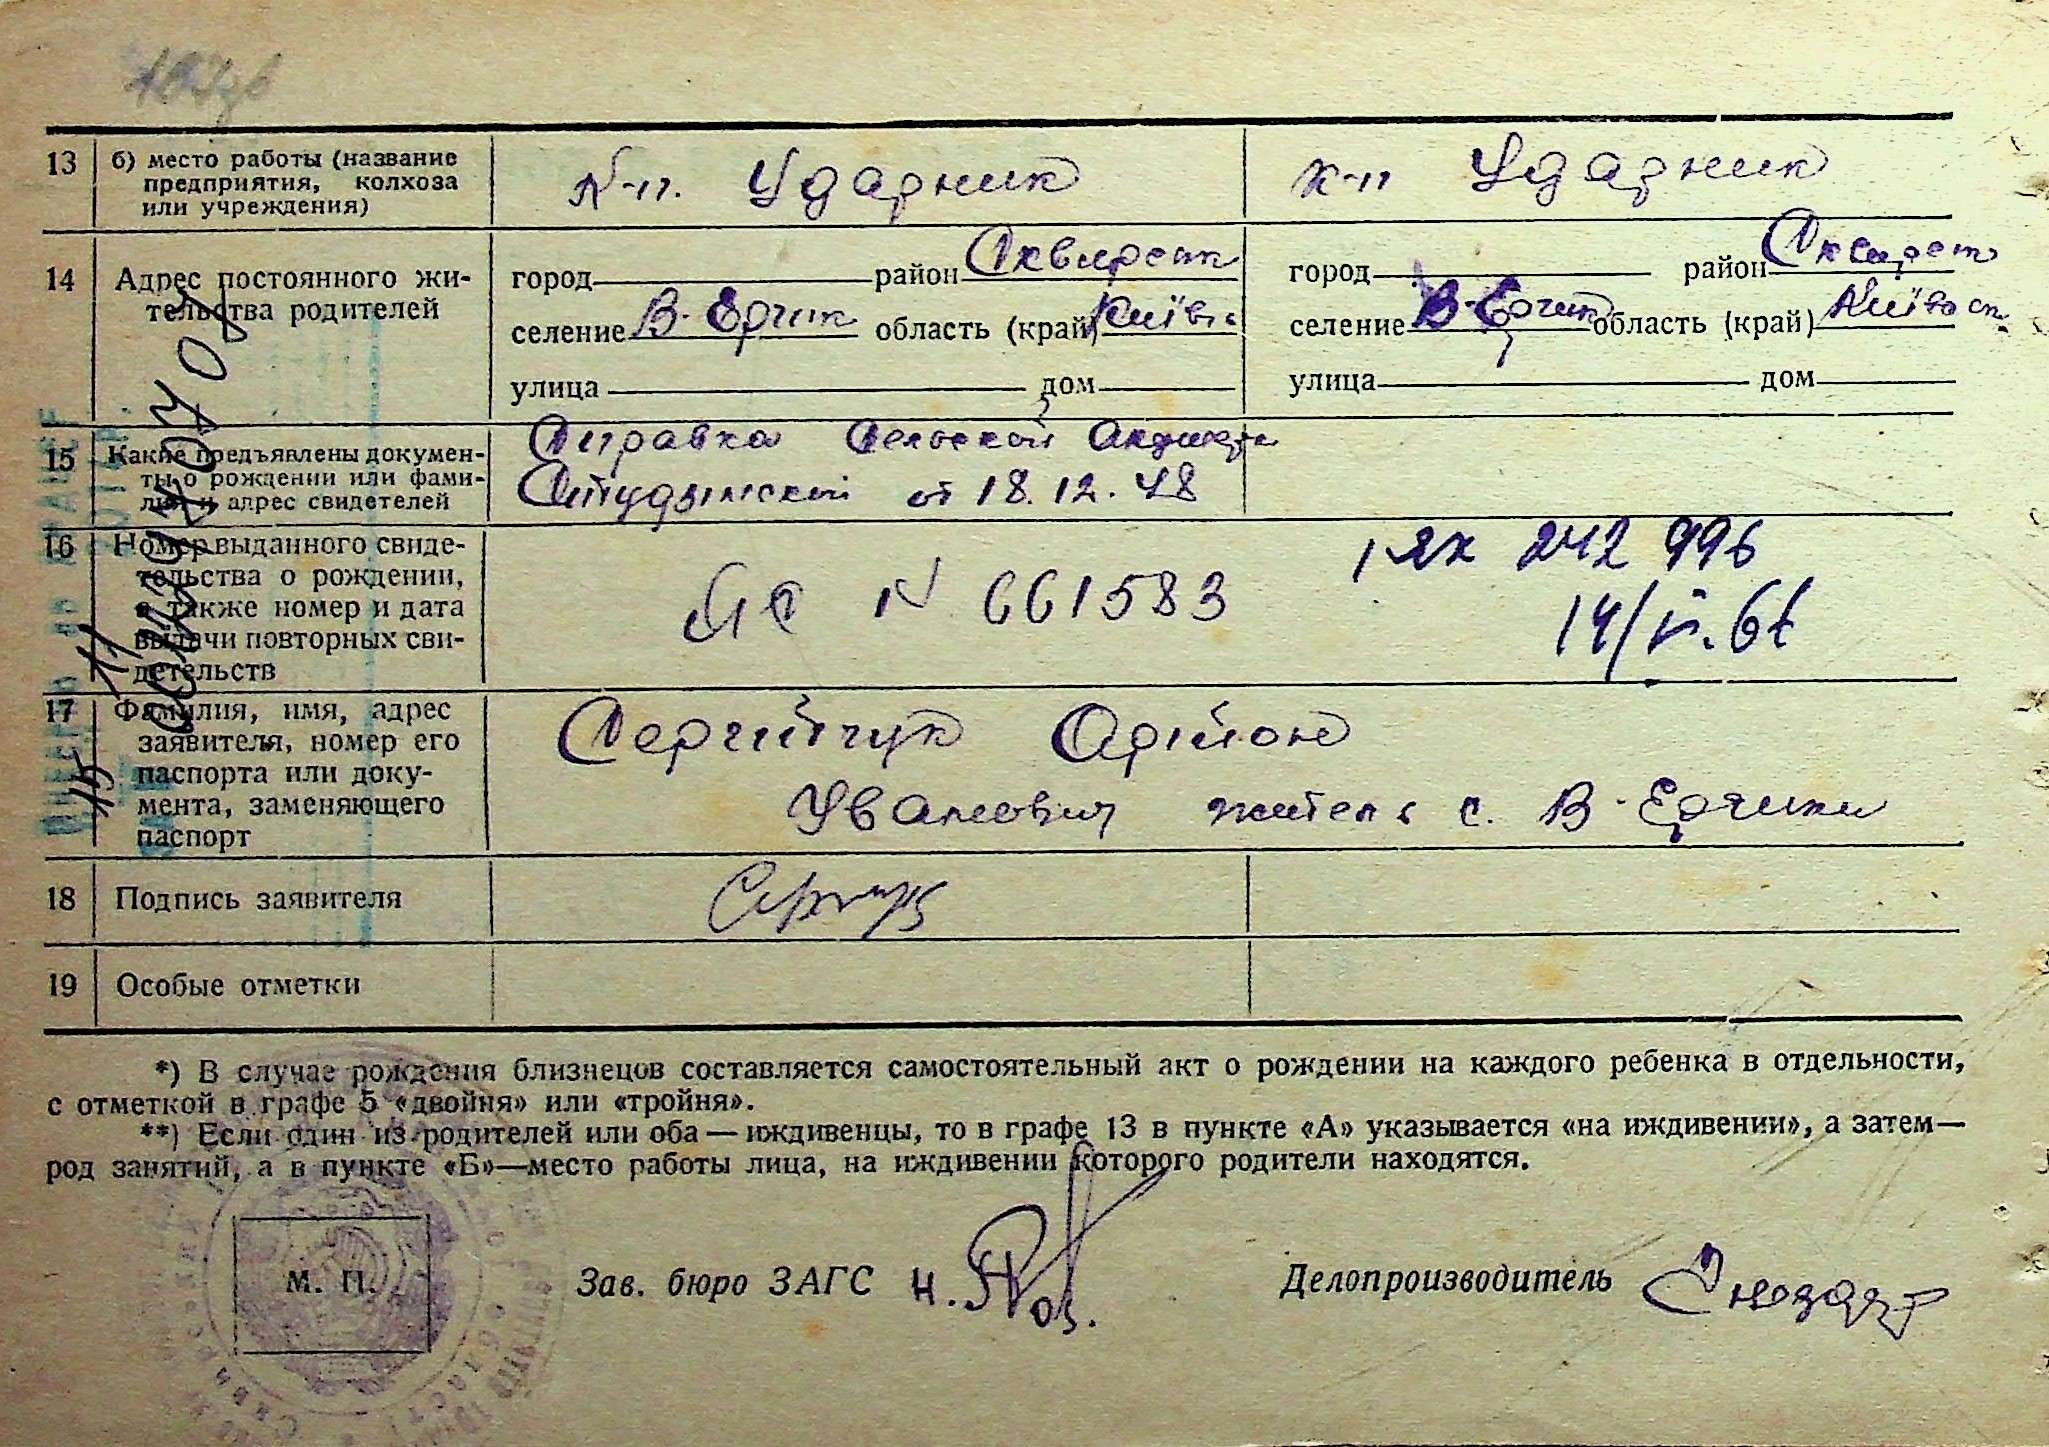 13 б) место работы (название
предприятия, колхоза
или учреждения)
К-п. Ударник
К-п Ударник
14 Адрес постоянного жи-
тельства родителей
город район Сквирськ
селение В-Ерчик область (край) Київс
улица дом
город район Сквирськ
селение В-Ерчик область (край) Київськ
улица дом
15 Какие предъявлены докумен-
ты о рождении или фами-
лия и адрес свидетелей
Справка Сельской
от 18.12.48
16 Номер выданного свиде-
тельства о рождении,
а также номер и дата
выдачи повторных сви-
детельств
N 661583
242 996
17 Фамилия, имя, адрес
заявителя, номер его
паспорта или доку-
мента, заменяющего
паспорт
Сергійчук
Іванович житель с. В-Ерчики
18 Подпись заявителя
19 Особые отметки
*) В случае рождения близнецов составляется самостоятельный акт о рождении на каждого ребенка в отдельности,
с отметкой в графе 5 «двойня» или «тройня».
**) Если один из родителей или оба — иждивенцы, то в графе 13 в пункте «А» указывается «на иждивении», а затем—
род занятий, а в пункте «Б»—место работы лица, на иждивении которого родители находятся.
М. П.
Зав. бюро ЗАГС
Делопроизводитель